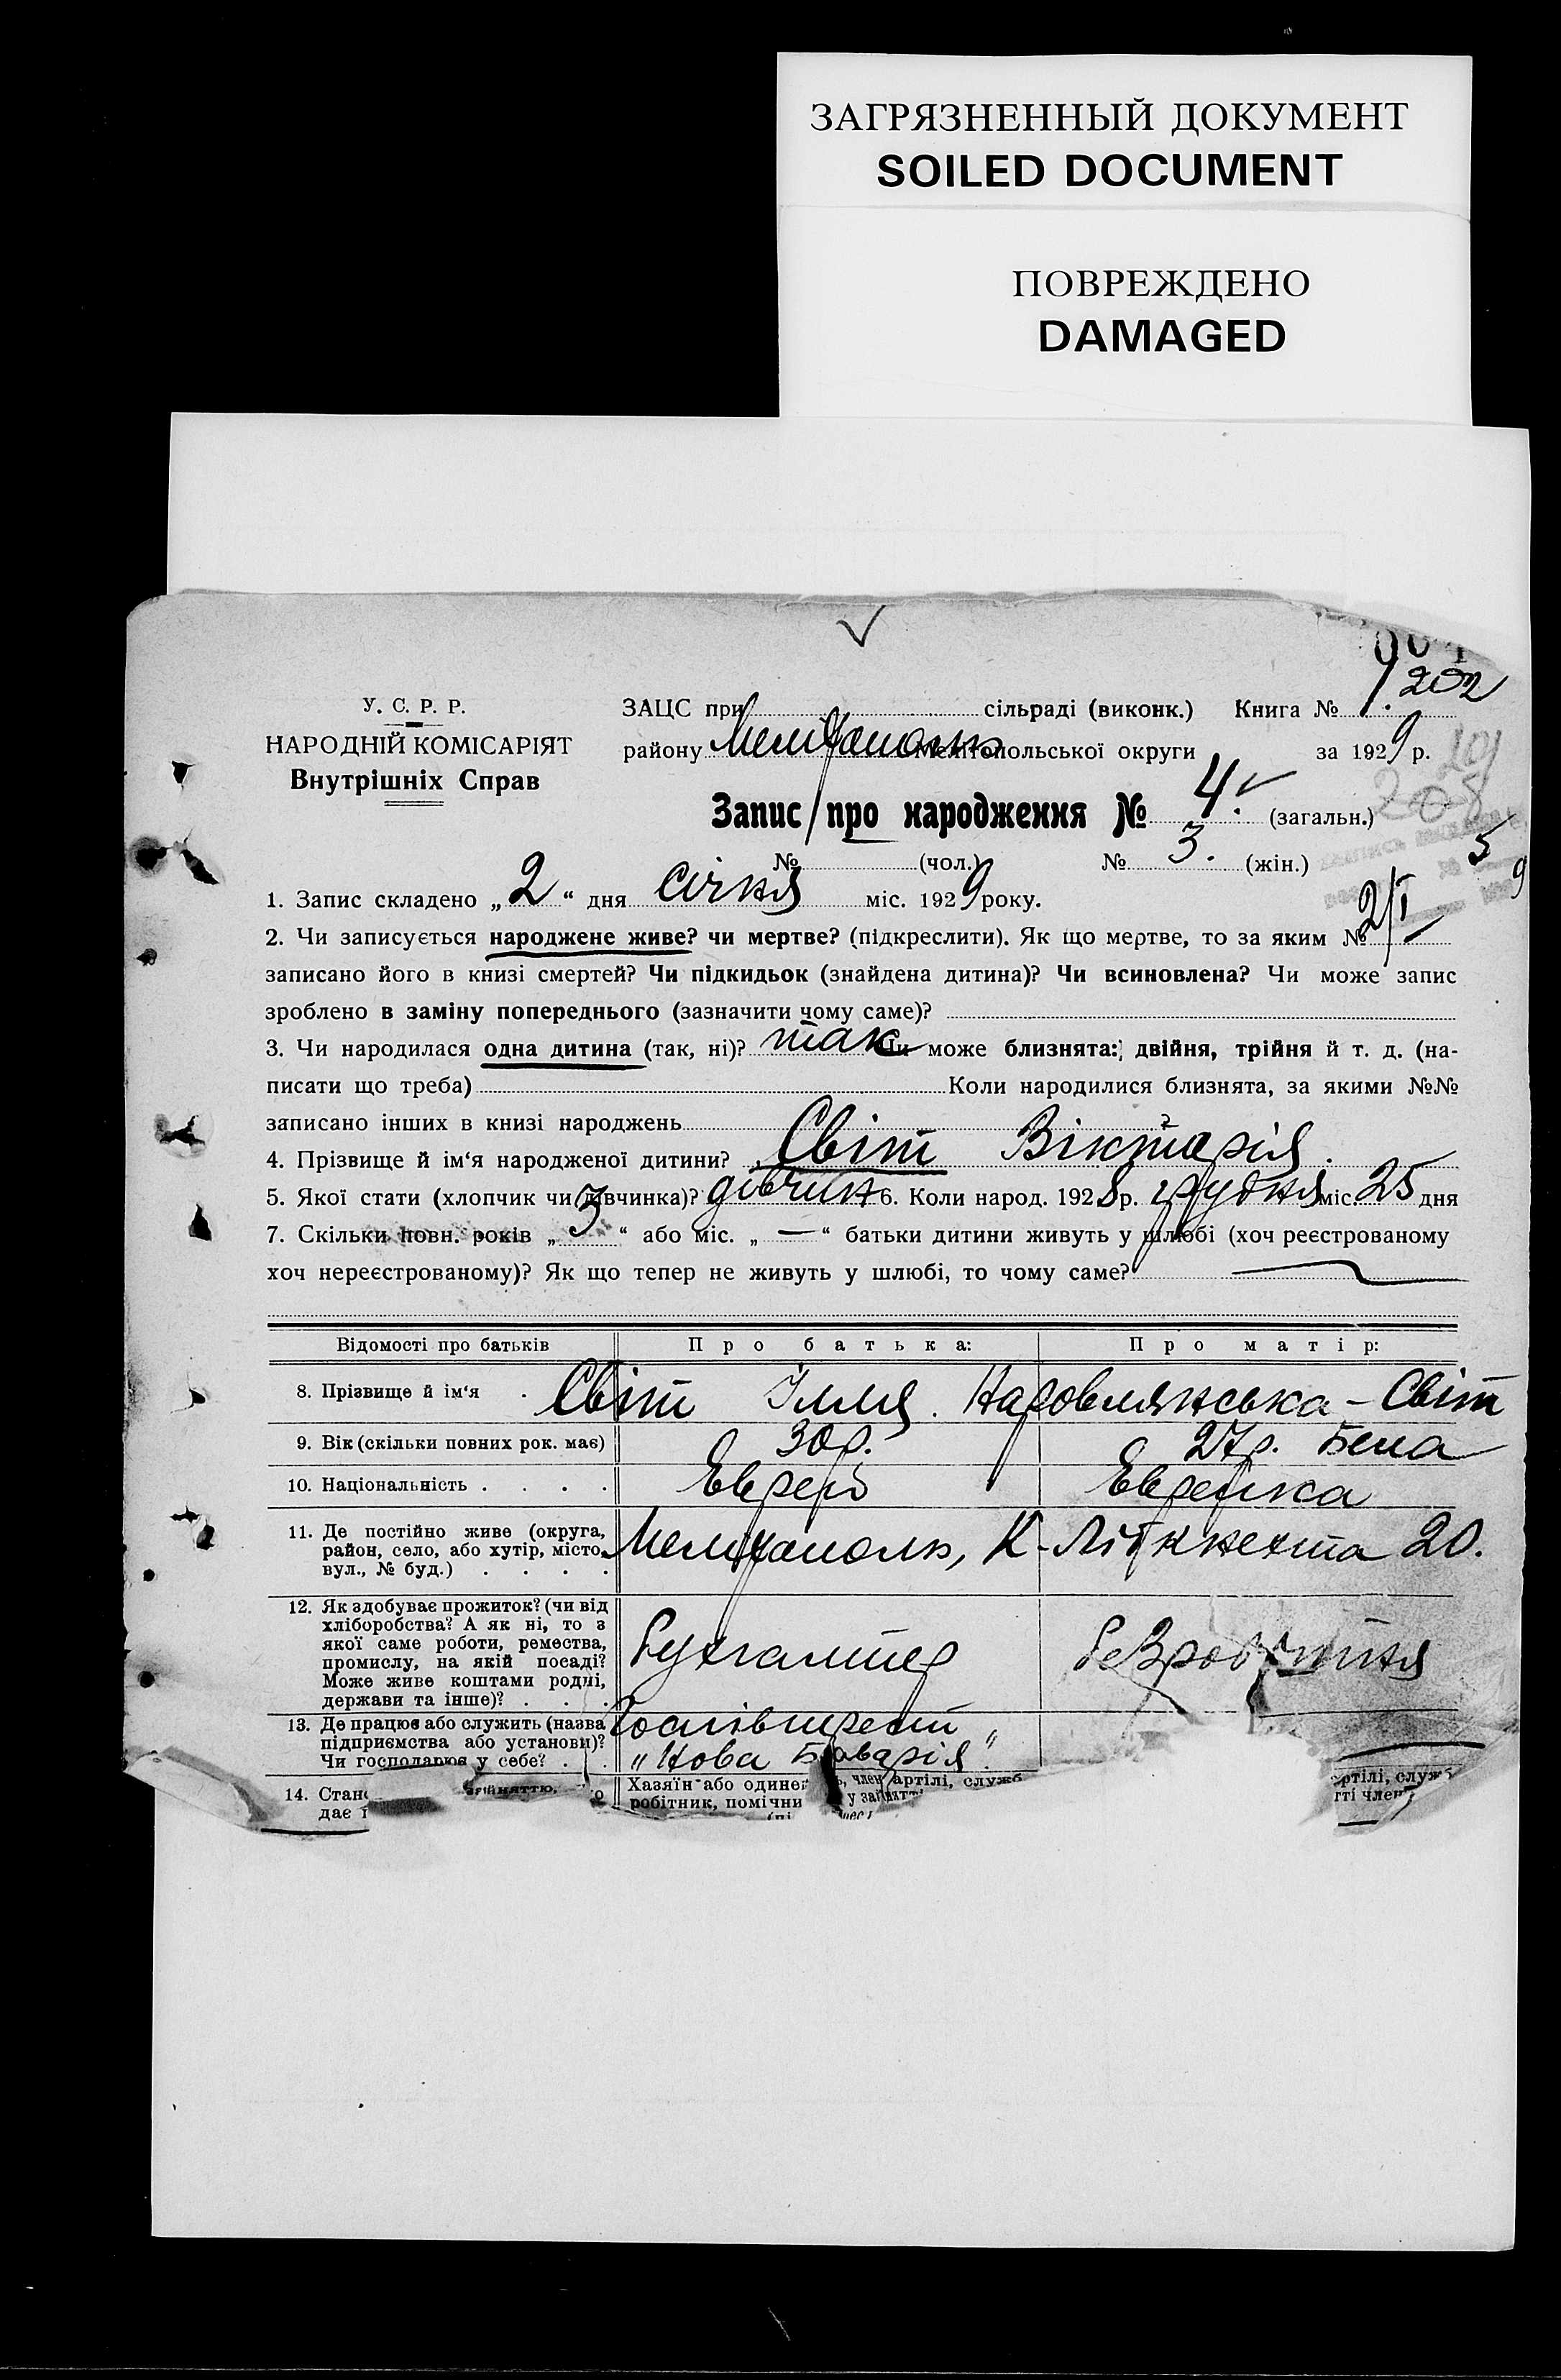 ЗАГРЯЗНЕННЫЙ ДОКУМЕНТ
SOILED DOCUMENT
ПОВРЕЖДЕНО
DAMAGED
202
У. С. Р. Р.
НАРОДНІЙ КОМІСАРІЯТ
Внутрішніх Справ
ЗАЦС при сільраді (виконк.) Книга № 1.
району Мелітополь Мелітопольської округи за 1929 р.
201
208
Запис про народження № 4. (загальн.)
№ (чол.) № 3. (жін.)
5
9
1. Запис складено „2“ дня січня міс. 1929 року.
2/I
2. Чи записується народжене живе? чи мертве? (підкреслити). Як що мертве, то за яким №
записано його в книзі смертей? Чи підкидьок (знайдена дитина)? Чи всиновлена? Чи може запис
зроблено в заміну попереднього (зазначити чому саме)?
3. Чи народилася одна дитина (так, ні)? так Чи може близнята: двійня, трійня й т. д. (на-
писати що треба) Коли народилися близнята, за якими №№
записано інших в книзі народжень
4. Прізвище й ім‘я народженої дитини? Світ Вікторія.
5. Якої стати (хлопчик чи дівчинка)? дівчина 6. Коли народ. 1928 р. грудня міс. 25 дня
7. Скільки повн. років „3“ або міс. „—“ батьки дитини живуть у шлюбі (хоч реєстрованому
хоч нереєстрованому)? Як що тепер не живуть у шлюбі, то чому саме?
Відомості про батьків Про батька: Про матір:
8. Прізвище й ім‘я . Світ Ілля. Наровлянська - Світ
9. Вік (скільки повних рок. має) 30 р. 27 р. Бела
10. Національність . . . . Еврей Еврейка
11. Де постійно живе (округа,
район, село, або хутір, місто,
вул., № буд.) . . . .
Мелітополь, К-Лібкнехта 20.
12. Як здобуває прожиток? (чи від
хліборобства? А як ні, то з
якої саме роботи, ремества,
промислу, на якій посаді?
Може живе коштами родні,
держави та інше)? . . .
Бухгалтер безробітня
13. Де працює або служить (назва
підприємства або установи)?
Чи господарює у себе? . .
„Нова Баварія“.
14. Стан
дає
Хазяїн або
робітник, помічни
у
артілі, служб
артілі, служ
член